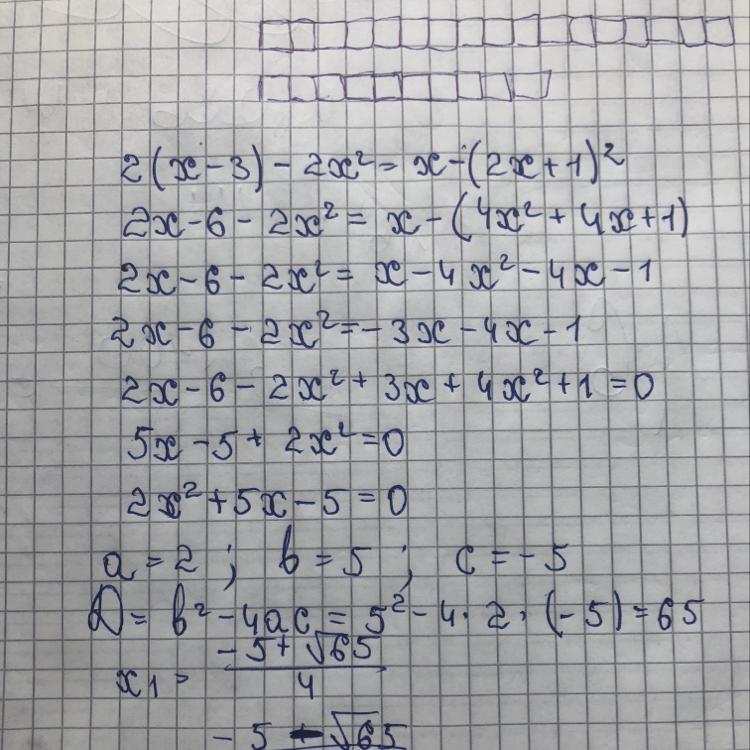 2(x-3) - 2x² = x-(2x+1)²
2x-6 - 2x² = x - (4x² + 4x+1)
2x-6 - 2x² = x - 4x² - 4x - 1
2x-6 - 2x² = - 3x - 4x - 1
2x-6 - 2x² + 3x + 4x² + 1 = 0
5x - 5 + 2x² = 0
2x² + 5x - 5 = 0
a = 2 ; b = 5 ; c = - 5
D = b² - 4ac = 5² - 4 · 2 · (-5) = 65
x1 = (-5 + √65) / 4
- 5 - √65